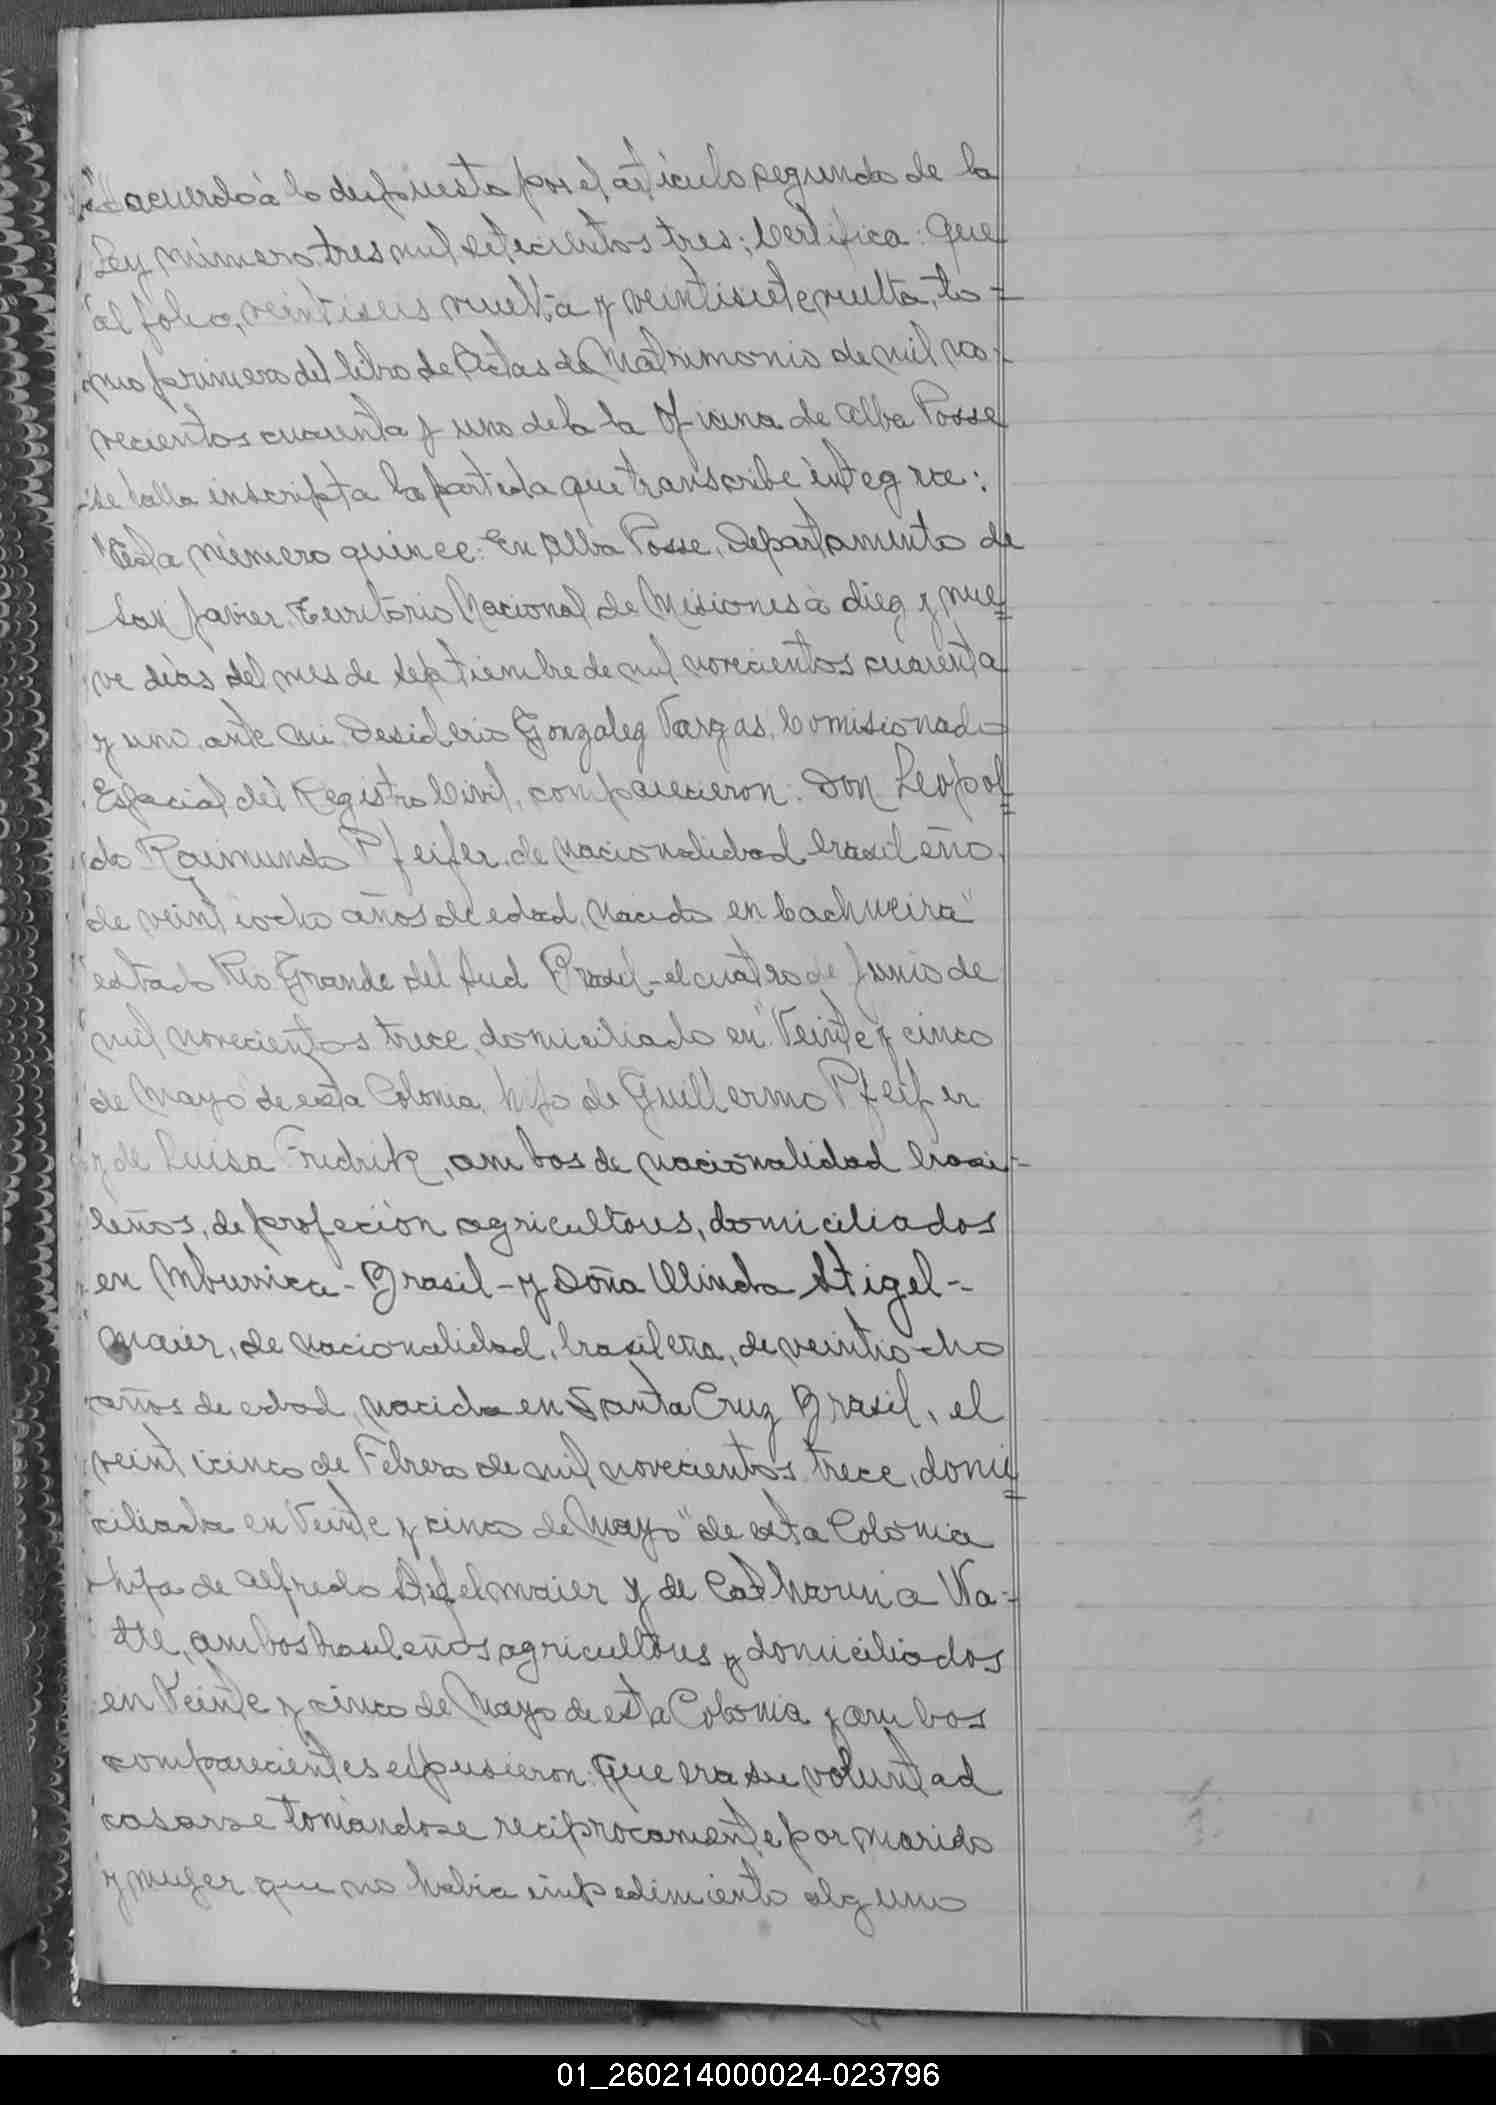 acuerdo à lo dispuesto por el artículo segundo de la
Ley número tres mil setecientos tres; Certifica: Que
al folio, veintiseis vuelta y veintisiete vuelta, to=
mo primero del libro de Actas de Matrimonio de mil no-
vecientos cuarenta y uno de la la Oficina de Alba Posse
se halla inscripta la partida que transcribe integra:
"Acta número quince: En Alba Posse, Departamento de
San Javier, Territorio Nacional de Misiones à diez y nue=
ve dias del mes de Septiembre de mil novecientos cuarenta
y uno, ante mi Desiderio Gonzalez Vargas, Comisionado
Especial del Registro Civil, comparecieron: Don Leopol=
do Raimundo Pfeifer, de nacionalidad brasileño,
de veintiocho años de edad, nacido en Cachueira"
estado Rio Grande del Sud Brasil - el cuatro de Junio de
mil novecientos trece, domiciliado en "Veinte y cinco
de Mayo" de esta Colonia, hijo de Guillermo Pfeifer
y de Luisa Fredrik, ambos de nacionalidad brasi-
leños, de profeción agricultores, domiciliados
en Mburica - Brasil - y Doña Olinda Stigel-
maier, de nacionalidad, brasileña, de veintiocho
años de edad, nacida en Santa Cruz Brasil, el
veinticinco de Febrero de mil novecientos trece, domi=
ciliada en "Veinte y cinco de Mayo" de esta Colonia
hija de Alfredo Stigelmaier y de Catharina Wa-
tte, ambos brasileños, agricultores y domiciliados
en Veinte y cinco de Mayo de esta Colonia y ambos
comparecientes expusieron: Que era su voluntad
casarse tomándose reciprocamente por marido
y mujer que no habia impedimiento alguno
01_260214000024-023796